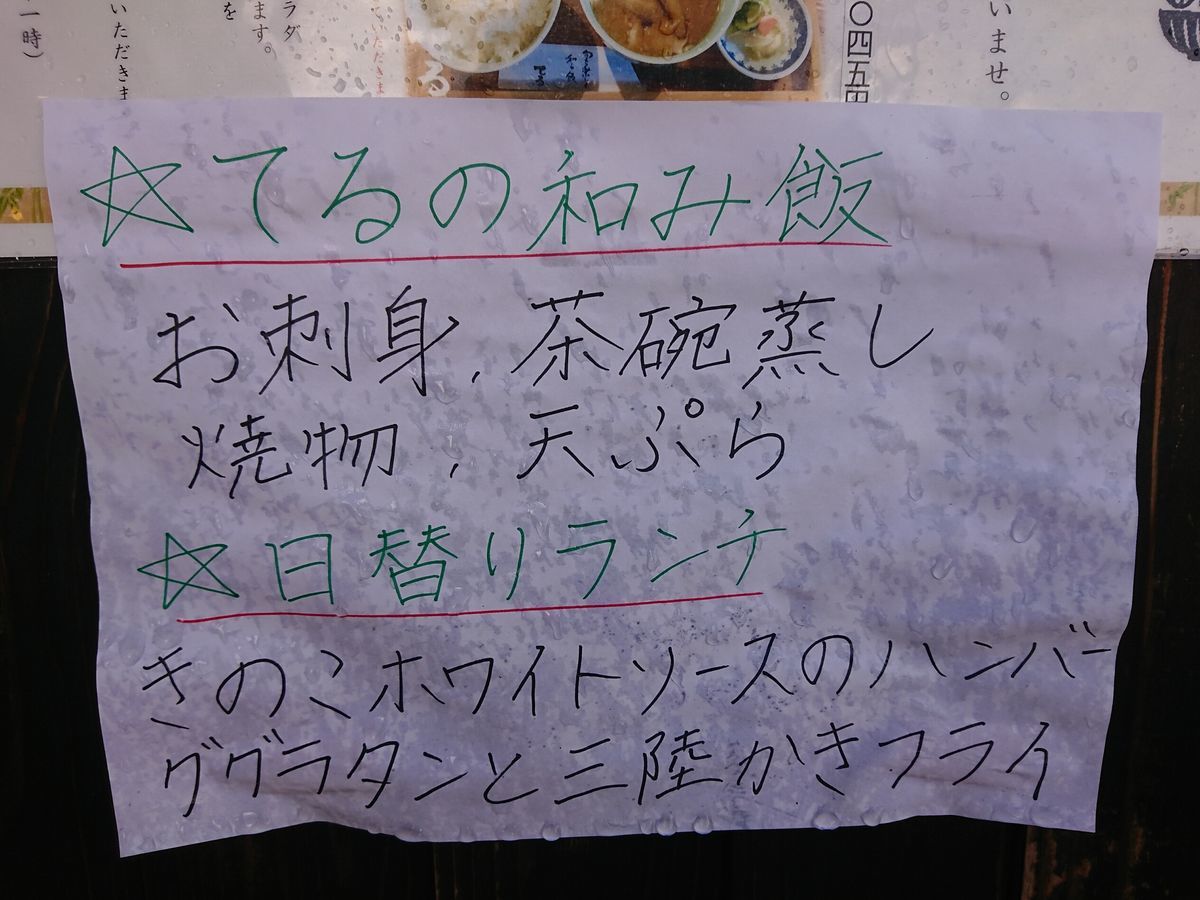 ラダ
ます。
を
一時）
いただきま
いただきま
る
〇四五円
いませ。
☆てるの和み飯
お刺身，茶碗蒸し
焼物，天ぷら
☆日替りランチ
きのこホワイトソースのハンバー
ググラタンと三陸かきフライ